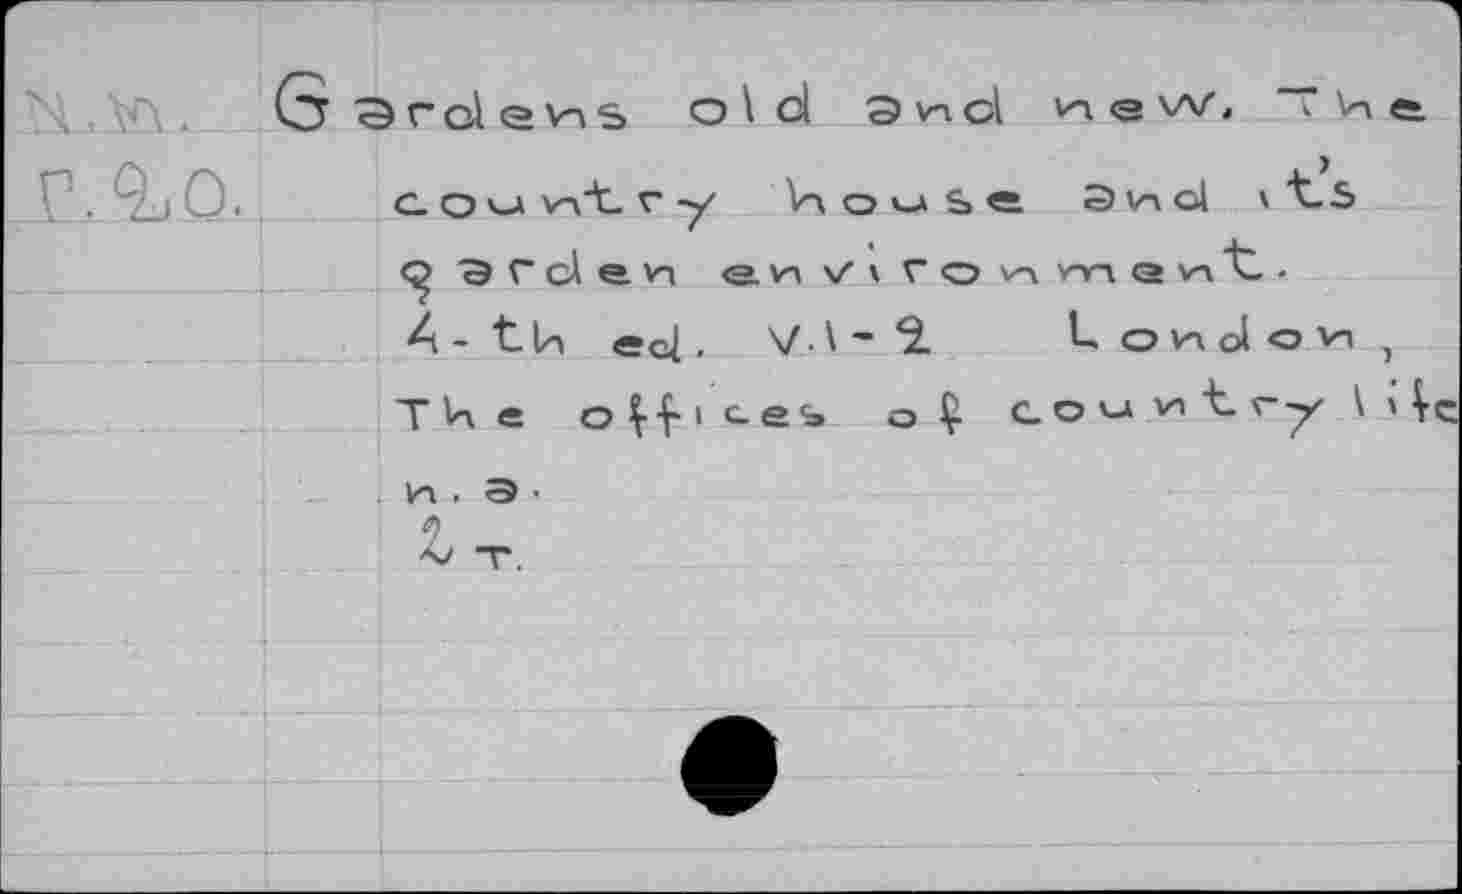 Gardens old and new. The
Г. 20. country house and it's
garden environment.
4-th ed. V.1-2 London,
The offices of country life
n.a.
2 т.